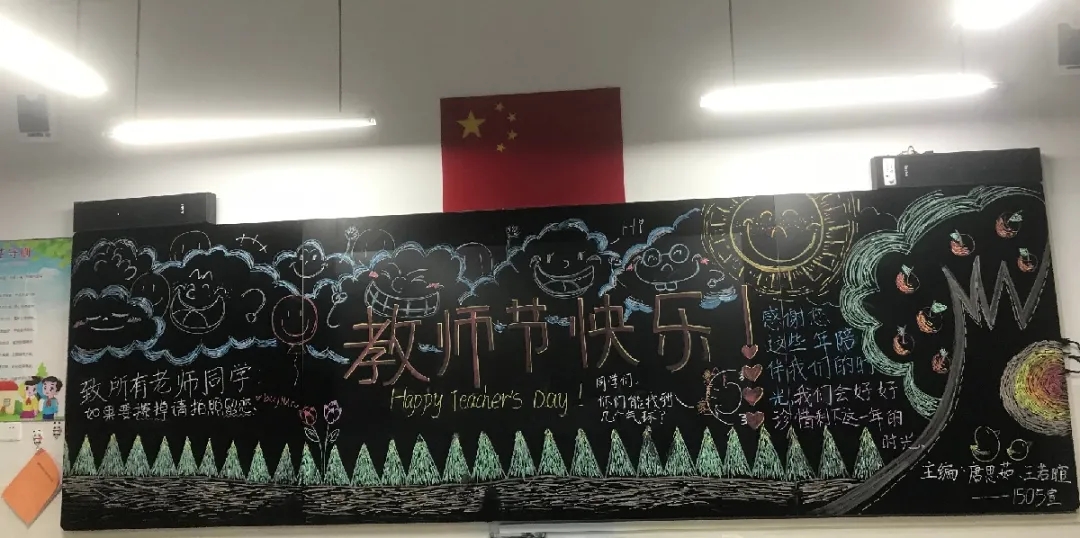 教师节快乐！
Happy Teacher's Day!
致所有老师同学:
如果要擦掉请拍照留恋.
同学们.
你们能找到
几个气球？
感谢您
这些年陪
伴我们的时
光,我们会好好
珍惜剩下这一年的
时光.
主编:唐思茹、王若暄
——1505室